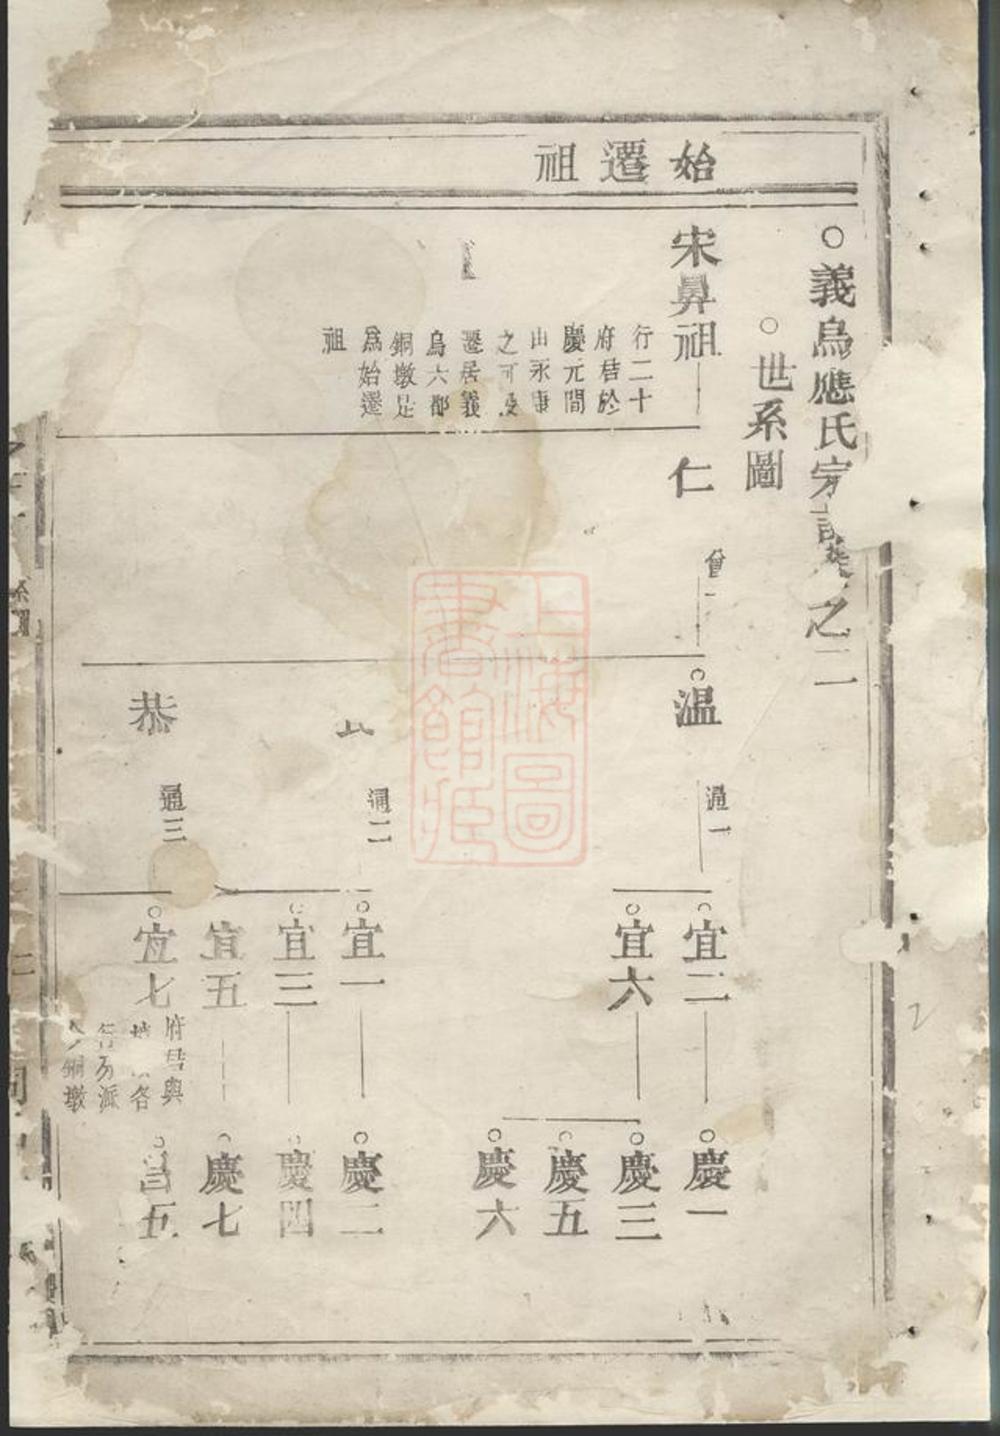 ○義烏應氏宗譜卷之二
○世系圖
始遷祖
宋鼻祖
行二十
府桔於
慶元間
山永康
之可投
遷居義
烏六都
銅墩是
爲始遷
祖
仁
曾一
溫
通一
通二
恭
通三
宜二
宜六
宜一
宜三
宜五
宜七
府君與
各
行分派
銅墩
慶一
慶三
慶五
慶六
慶二
慶四
慶七
昌五
上海圖
書館藏